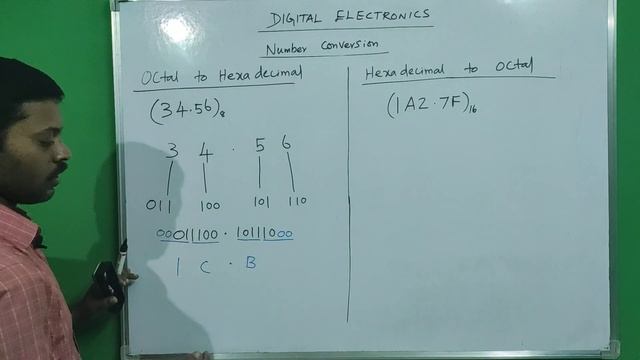 DIGITAL ELECTRONICS
Number Conversion
Octal to Hexadecimal
(34.56)₈
3 4 . 5 6
011 100 101 110
00011100 . 10111000
1 C . B
Hexadecimal to Octal
(1A2.7F)₁₆